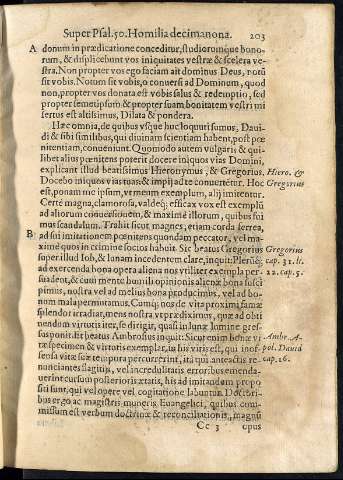 Super Psal. 50. Homilia decimanona. 203
A donum in prædicatione conceditur, studiorumque bono-
rum, & displicebunt vos iniquitates vestræ & scelera ve-
stra. Non propter vos ego faciam ait dominus Deus, notū
sit vobis. Notum sit vobis, o conuersi ad Dominum, quod
non, propter vos donata est vobis salus & redemptio, sed
propter semetipsum & propter suam bonitatem vestri mi
sertus est altissimus, Dilata & pondera.
Hæc omnia, de quibus vsque huc loquuti sumus, Daui-
di & sibi similibus, qui diuinam scientiam habent, post pœ
nitentiam, conueniunt. Quomodo autem vulgaris & qui-
libet alius pœnitens poterit docere iniquos vias Domini,
explicant illud beatissimus Hieronymus, & Gregorius, Hiero. &
Docebo iniquos vias tuas: & impij ad te conuertētur. Hoc Gregorius
est, ponam me ipsum, vt meum exemplum, alij imitentur.
Certè magna, clamorosa, valdeq; efficax vox est exemplū
ad aliorum conuersionem, & maximè illorum, quibus fui
mus scandalum. Trahit sicut magnes, etiam corda ferrea,
B ad sui imitationem pœnitens quondam peccator, vel ma-
ximè quos in crimine socios habuit. Sic beatus Gregorius Gregorius
super illud Iob, & lunam incedentem clare, inquit: Plerūq; cap. 31. li.
ad exercenda bona opera aliena nos vtiliter exempla per- 22. cap. 5.
suadent, & cum mente humili opinionis alienæ bona susci
pimus, nostra vel ad melius bona producimus, vel ad bo-
num mala permutamus. Cumq; nos de vita proximi, famæ
splendor irradiat, mens nostra vt prædiximus, quæ ad obti
nendum virtutis iter, se dirigit, quasi in lunæ lumine gres-
sus ponit. Et beatus Ambrosius inquit: Sicut enim bonæ vi Ambr. A-
tæ specimen & virtutis exemplar, in his viris est, qui inof pol. Dauid
fensa vitæ suæ tempora percurrerint, ita qui anteactis re cap. 16.
nunciantes flagitijs, vel incredulitatis erroribus emenda-
uerint cursum posterioris ætatis, his ad imitandum propo
siti sunt, qui vel opere vel cogitatione labuntur. Doctori-
bus ergo ac magistris muneris Euangelici, quibus com-
missum est verbum doctrinæ & reconciliationis, magnū
Cc 3 opus